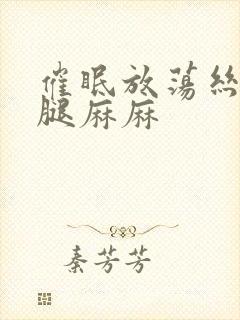 催眠放荡絲
腿麻麻
秦芳芳